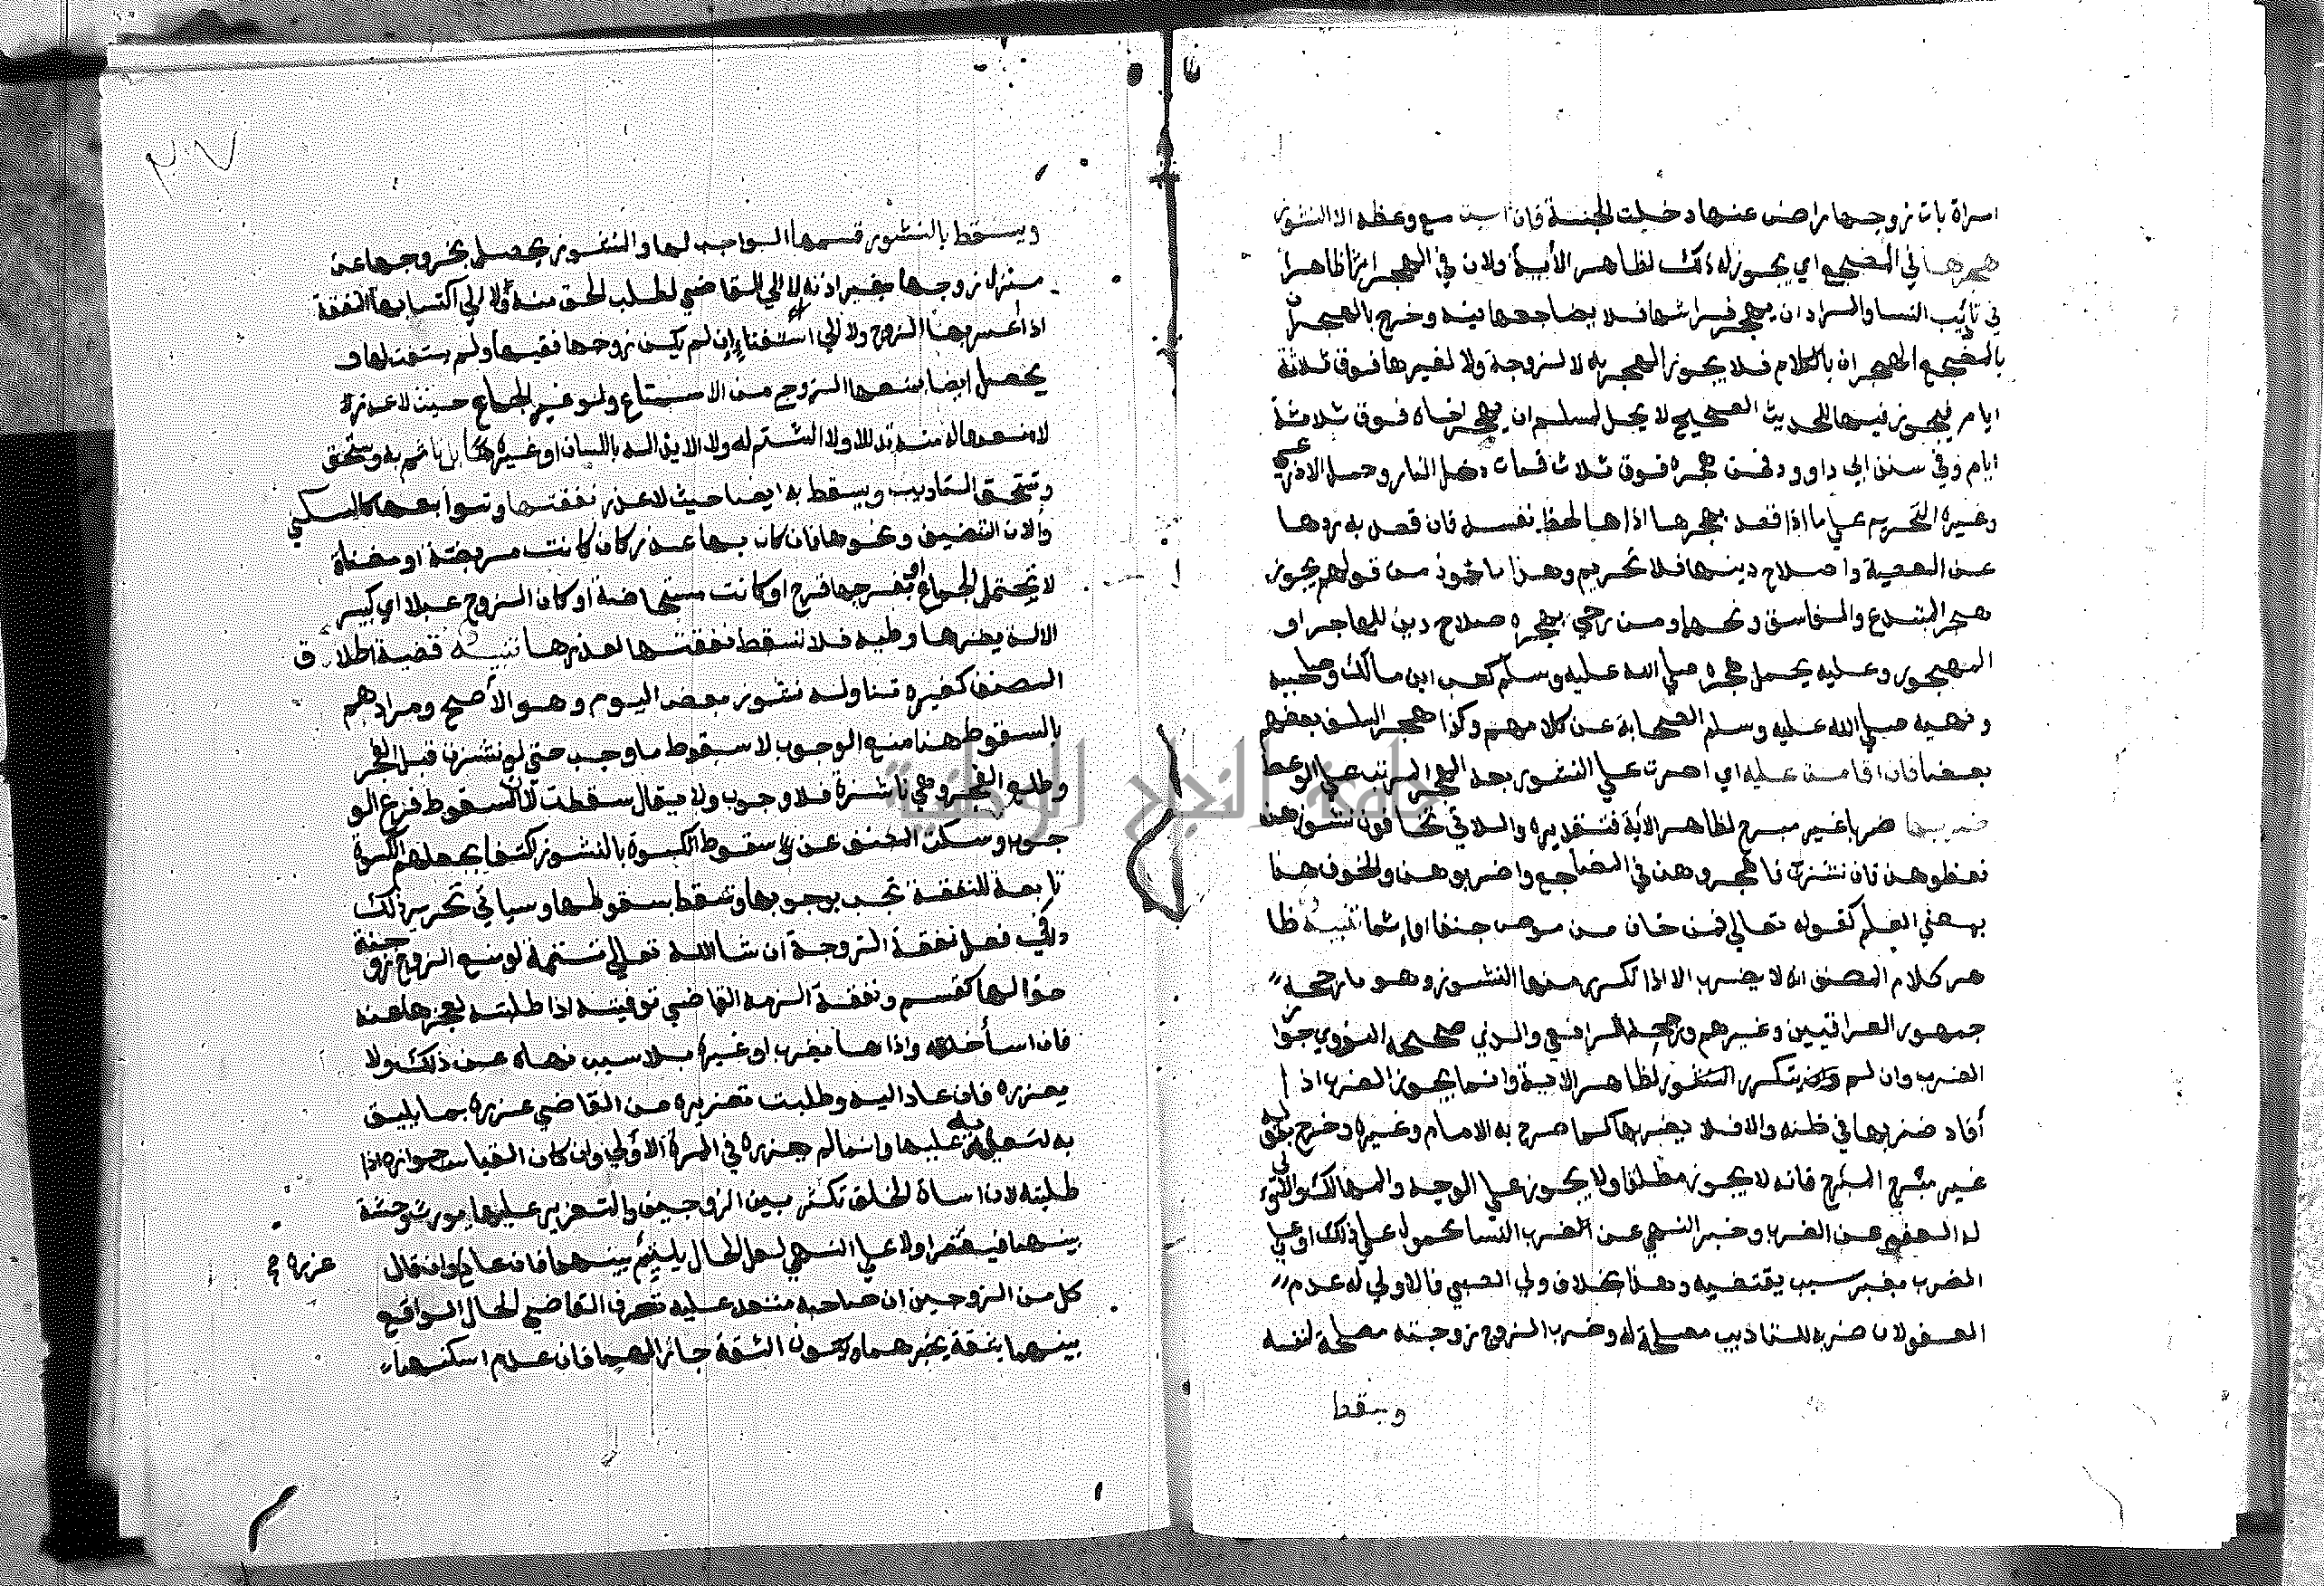 امراة بات زوجها راض عنها دخلت الجنة فان ابت مع وعظه الا النشوز
هجرها في المضجع اي يجوز له ذلك لظاهر الأية ولان في الهجر اثرا ظاهرا
في تأديب النسا والمراد ان يهجر فراشها فلا يضاجعها فيه وخرج بالهجران
بالمضجع الهجران بالكلام فلا يجوز الهجر به لا لزوجة ولا لغيرها فوق ثلاثة
ايام فيجوز فيها للحديث الصحيح لا يحل لمسلم ان يهجر اخاه فوق ثلاثة
ايام وفي سنن ابي داوود فمن هجره فوق ثلاث فمات دخل النار وحمل الاذرعي
وغيره التحريم علي ما اذا قصد بهجرها اذاها لحظ نفسه فان قصد به ردها
عن المعصية واصلاح دينها فلا تحريم وهذا ماخوذ من قولهم يجوز
هجر المبتدع والفاسق ونحوهما ومن رجي بهجره صلاح دين للهاجر او
المهجور وعليه يحمل هجره صلي الله عليه وسلم كعب ابن مالك وصاحبيه
ونهيه صلي الله عليه وسلم الصحابة عن كلامهم وكذا هجر السلف بعضهم
بعضا فان اقامت عليه اي اصرت علي النشوز بعد الهجر المرتب علي الوعظ
ضربها ضربا غير مبرح لظاهر الأية فتقديره واللاتي تخافون نشوزهن
فعظوهن فان نشزن فاهجروهن في المضاجع واضربوهن والخوف هنا
بمعني العلم كقوله تعالي فمن خاف من موص جنفا او إثما تنبيه ظا
هر كلام المصنف انه لا يضرب الا اذا تكرر منها النشوز وهو ما رجحه
جمهور العراقيين وغيرهم ورجحه الرافعي والذي صححه النووي جواز
الضرب وان لم يتكرر النشوز لظاهر الاية وانما يجوز الضرب اذا
أفاد ضربها في ظنه والا فلا يضربها كما صرح به الامام وغيره وخرج بقوله
غير مبرح المبرح فانه لا يجوز مطلقا ولا يجوز علي الوجه والمهالك والاولي
له العفو عن الضرب وخبر النهي عن الضرب النسا محمول علي ذلك او علي
الضرب بغير سبب يقتضيه وهذا بخلاف ولي الصبي فالاولي له عدم
العفو لان ضربه للتاديب مصلحة له وضرب الزوج زوجته مصلحة لنفسه
ويسقط
٣٠٧
ويسقط بالنشوز قسمها الواجب لها والنشوز يحصل بخروجها عن
منزل زوجها بغير اذنه لا الي القاضي لطلب الحق منه ولا الي اكتسابها النفقة
اذا اعسر بها الزوج ولا الي استفتاء إن لم يكن زوجها فقيها ولم يستفت لها و
يحصل ايضا بمنعها الزوج من الاستمتاع ولو غير الجماع حيث لا عذر
لا منعها له منه تدللا ولا الشتم له ولا الايذا له باللسان او غيره بل تاثم به وتستحق
وتستحق التاديب ويسقط به ايضا حيث لا عذر نفقتها وتوابعها كالسكني
وألات التنضيف ونحوها فان كان بها عذر كان كانت مريضة او مضناة
لا تحتمل الجماع او بفرجها قرح او كانت مستحاضة او كان الزوج عبلا اي كبير
الالة يضرها وطيه فلا تسقط نفقتها لعذرها تنبيه قضية اطلاق
المصنف كغيره تناوله نشوز بعض اليوم وهو الأصح ومرادهم
بالسقوط هنا منع الوجوب لا سقوط ما وجب حتي لو نشزت قبل الفجر
وطلع الفجر وهي ناشزة فلا وجوب ولا يقال سقطت لان السقوط فرع الو
جوب وسكت المصنف عن سقوط الكسوة بالنشوز اكتفا بجعلهم الكسوة
تابعة للنفقة تجب بوجوبها وتسقط بسقوطها وسياتي تحرير ذلك
في فصل نفقة الزوجة ان شا الله تعالي تتمة لو منع الزوج زوجته
حقا لها كقسم ونفقة الزمه القاضي توفيته اذا طلبته لعجزها عنه
فان اسأ خلقه واذاها بضرب او غيره بلا سبب نهاه عن ذلك ولا
يعزره فان عاد اليه وطلبت تعزيره من القاضي عزره بما يليق
به لتعديه عليها وانما لم يعزره في المرة الأولي وان كان القياس جوازه اذا
طلبته لان اساة الخلق تكثر بين الزوجين والتعزير عليها يورث وحشة
بينهما فيقتصر اولا علي النهي لعل الحال يلتئم بينهما فان عاد وان قال
عزره صح
كل من الزوجين ان صاحبه متعد عليه تعرف القاضي الحال الواقع
بينهما بثقة يخبرهما ويكون الثقة جائرا لهما فان عدم اسكنهما
جامعة النجاح الوطنية